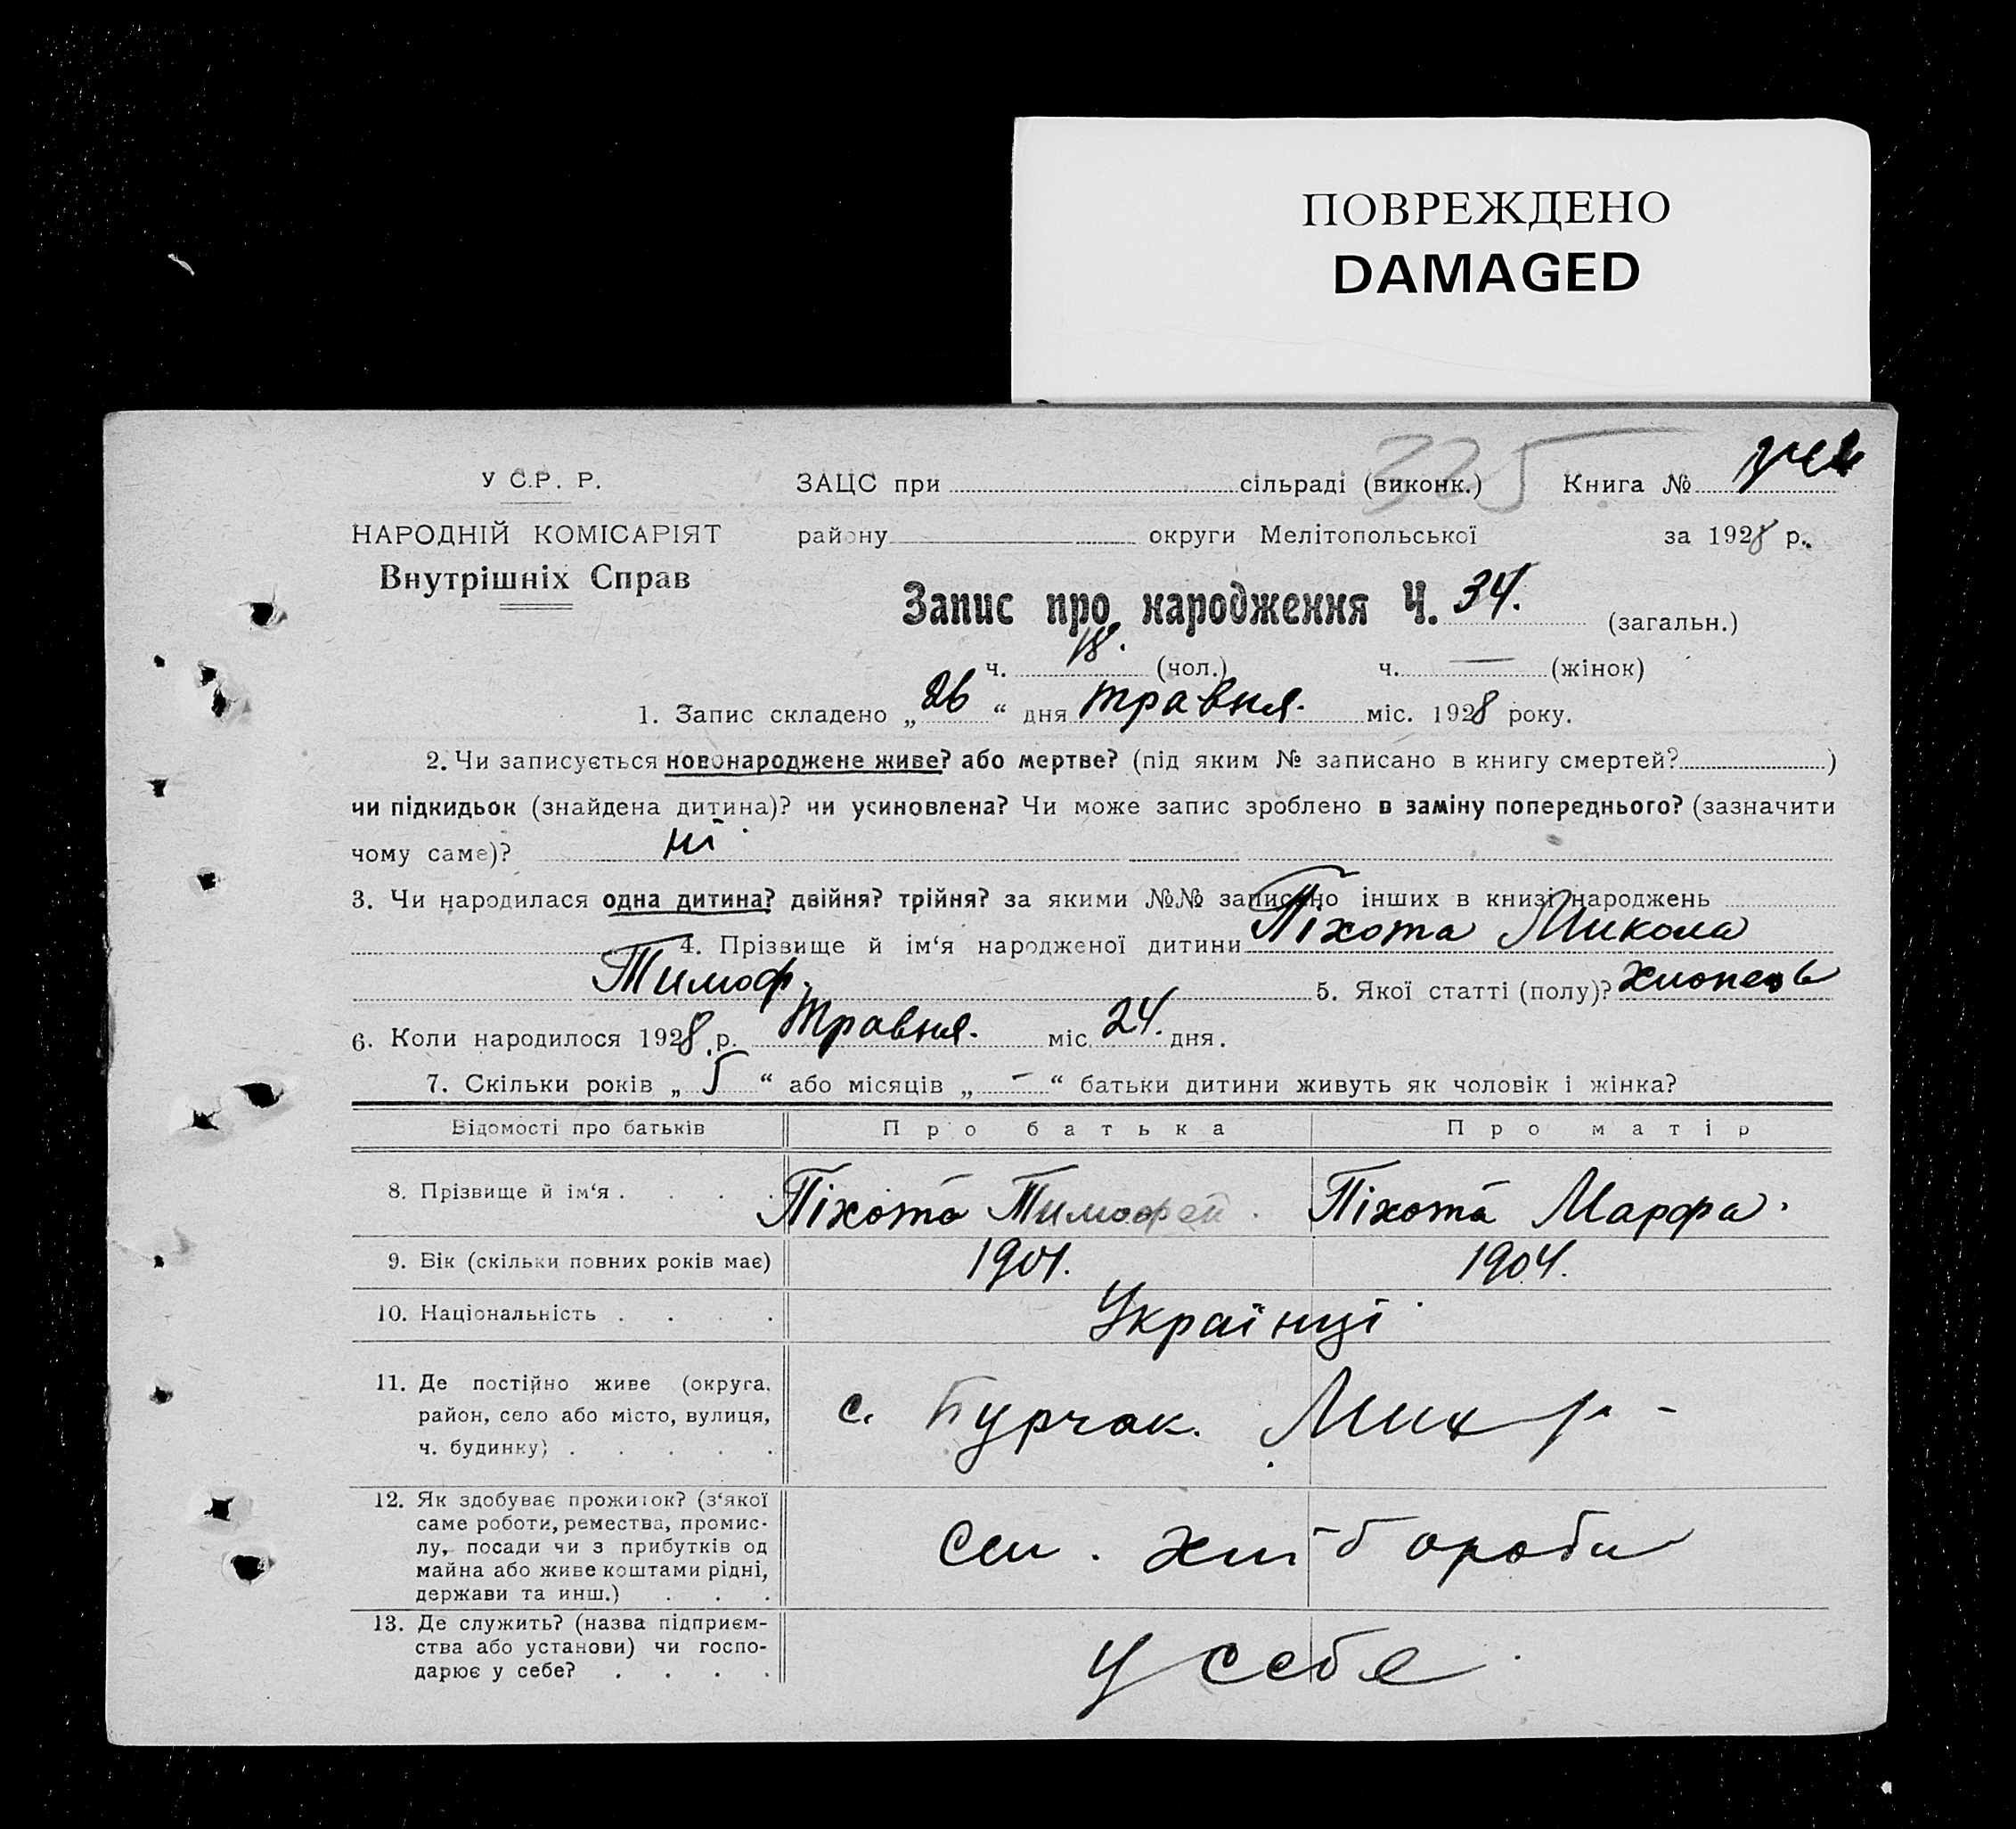 ПОВРЕЖДЕНО
DAMAGED
325
У С.Р. Р. ЗАЦС при сільраді (виконк.) Книга №
НАРОДНІЙ КОМІСАРІЯТ району округи Мелітопольської за 1928 р.
Внутрішніх Справ
Запис про народження Ч. 34. (загальн.)
ч. 18. (чол.) ч. — (жінок)
1. Запис складено „ 26 “ дня травня. міс. 1928 року.
2. Чи записується новонароджене живе? або мертве? (під яким № записано в книгу смертей? )
чи підкидьок (знайдена дитина)? чи усиновлена? Чи може запис зроблено в заміну попереднього? (зазначити
чому саме)? ні
3. Чи народилася одна дитина? двійня? трійня? за якими №№ записано інших в книзі народжень
4. Прізвище й ім‘я народженої дитини Піхота Микола
Тимоф. 5. Якої статті (полу)? хлопець
6. Коли народилося 1928 р. Травня. міс. 24. дня.
7. Скільки років „ 5 “ або місяців „ - “ батьки дитини живуть як чоловік і жінка?
Відомості про батьків Про батька Про матір
8. Прізвище й ім‘я . . . . Піхота Тимофей. Піхота Марфа.
9. Вік (скільки повних років має) 1901. 1904.
10. Національність . . . . Українці
11. Де постійно живе (округа,
район, село або місто, вулиця, с. Бурчак. Мих р-
ч. будинку) . . . . .
12. Як здобуває прожиток? (з‘якої
саме роботи, ремества, промис-
лу, посади чи з прибутків од сел. хлібороби
майна або живе коштами рідні,
держави та инш.) . . .
13. Де служить? (назва підприєм-
ства або установи) чи госпо- у себе.
дарює у себе? . . . .